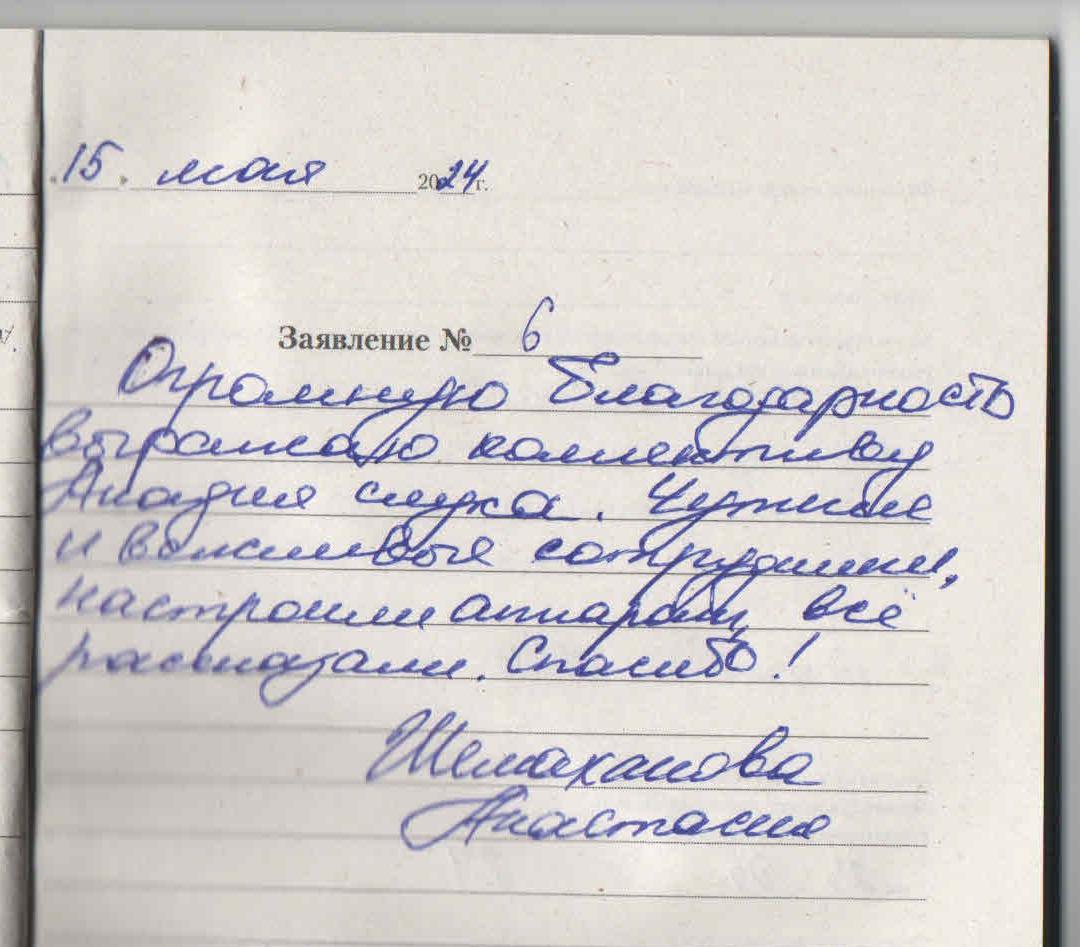 15. мая 2024г.
Заявление № 6
Огромную благодарность
выражаю коллективу
Академия слуха. Чуткие
и вежливые сотрудники,
настроили аппарат, всё
рассказали. Спасибо!
Шемаханова
Анастасия